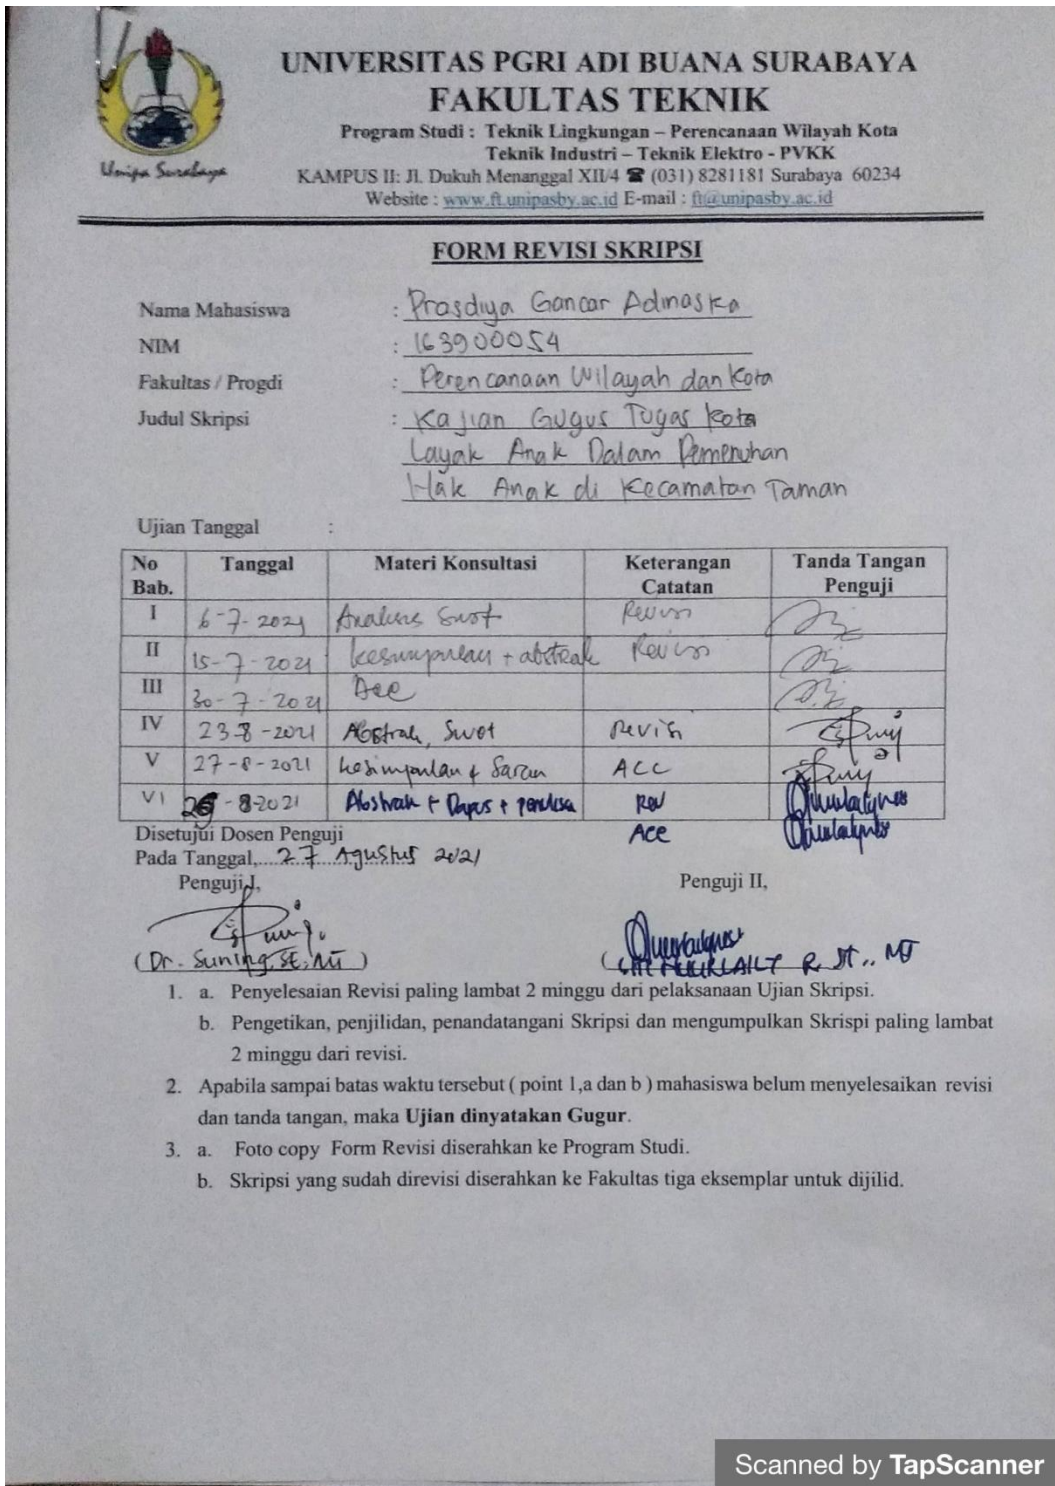 UNIVERSITAS PGRI ADI BUANA SURABAYA
FAKULTAS TEKNIK
Program Studi : Teknik Lingkungan – Perencanaan Wilayah Kota
Teknik Industri – Teknik Elektro - PVKK
KAMPUS II: Jl. Dukuh Menanggal XII/4 ☎ (031) 8281181 Surabaya 60234
Website : www.ft.unipasby.ac.id E-mail : ft@unipasby.ac.id
Unipa Surabaya
FORM REVISI SKRIPSI
Nama Mahasiswa : Prasdiya Gancar Admaska
NIM : 163900054
Fakultas / Progdi : Perencanaan Wilayah dan Kota
Judul Skripsi : Kajian Gugus Tugas Kota
Layak Anak Dalam Pemenuhan
Hak Anak di Kecamatan Taman
Ujian Tanggal :
No Bab. Tanggal Materi Konsultasi Keterangan Catatan Tanda Tangan Penguji
I 6-7-2021 Analisis Swot Revisi
II 15-7-2021 Kesimpulan + abstrak Revisi
III 30-7-2021 Acc
IV 23-8-2021 Abstrak, Swot Revisi
V 27-8-2021 Kesimpulan & Saran ACC
VI -8-2021 Abstrak + Dapus + Rev
Disetujui Dosen Penguji Acc
Pada Tanggal,....27 Agustus 2021
Penguji I, Penguji II,
(Dr. Suning, SE, MT)
( R. ST., MT
1. a. Penyelesaian Revisi paling lambat 2 minggu dari pelaksanaan Ujian Skripsi.
b. Pengetikan, penjilidan, penandatangani Skripsi dan mengumpulkan Skrispi paling lambat
2 minggu dari revisi.
2. Apabila sampai batas waktu tersebut ( point 1,a dan b ) mahasiswa belum menyelesaikan revisi
dan tanda tangan, maka Ujian dinyatakan Gugur.
3. a. Foto copy Form Revisi diserahkan ke Program Studi.
b. Skripsi yang sudah direvisi diserahkan ke Fakultas tiga eksemplar untuk dijilid.
Scanned by TapScanner